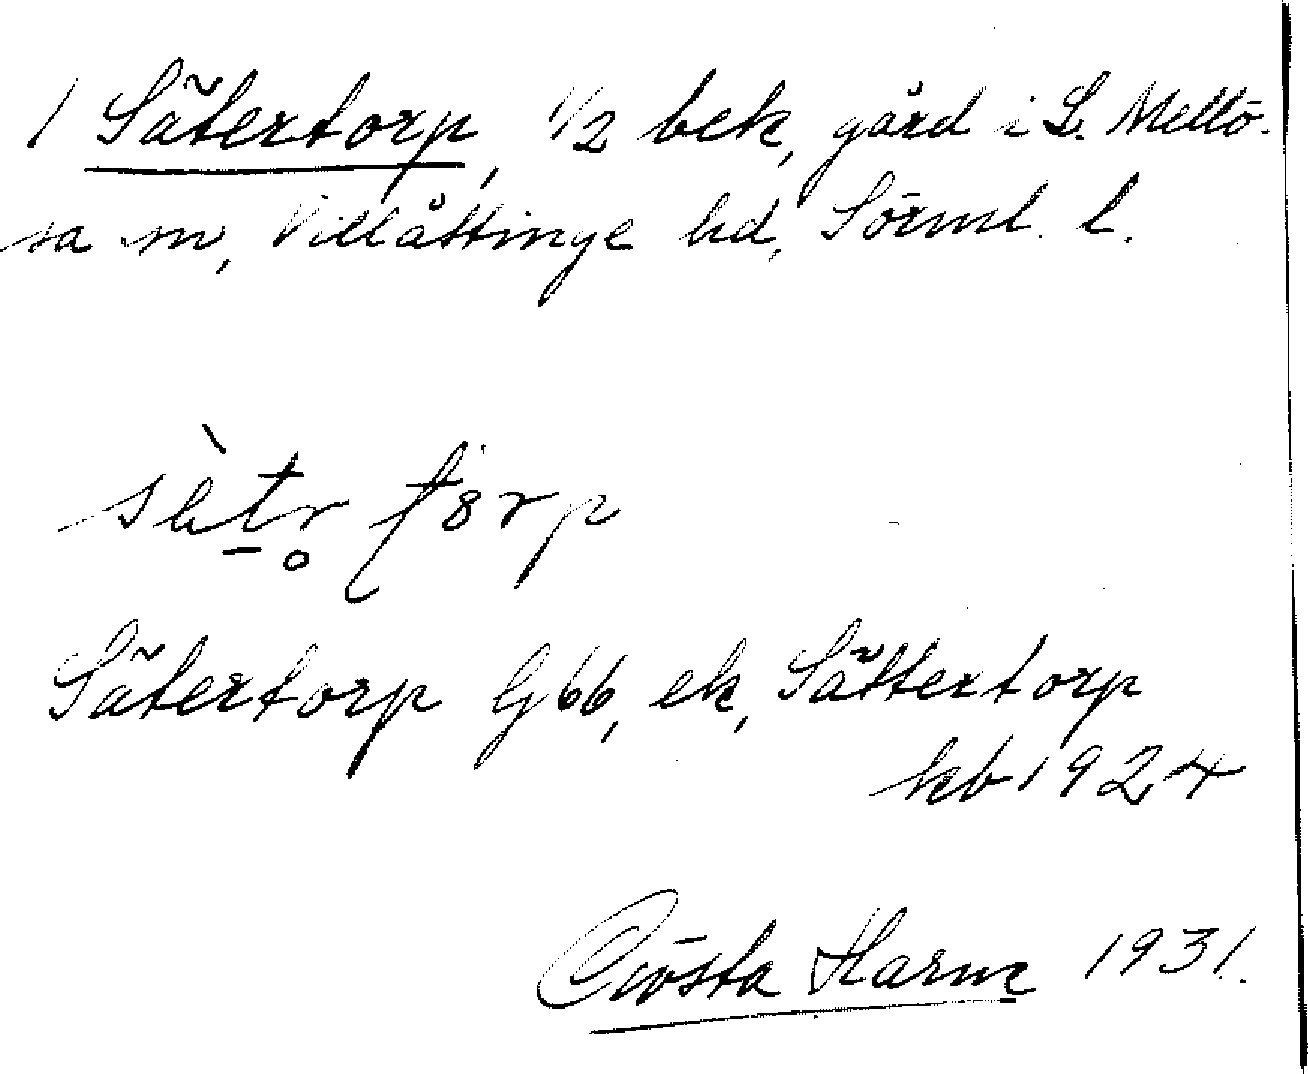 1 Sätertorp, 1/2 bek, gård i L. Mellö-
sa sn, Villåttinge hd, Sörml. l.
Sätertorp G66, ek, Sättertorp
kb 1924
Gösta Harm 1931.